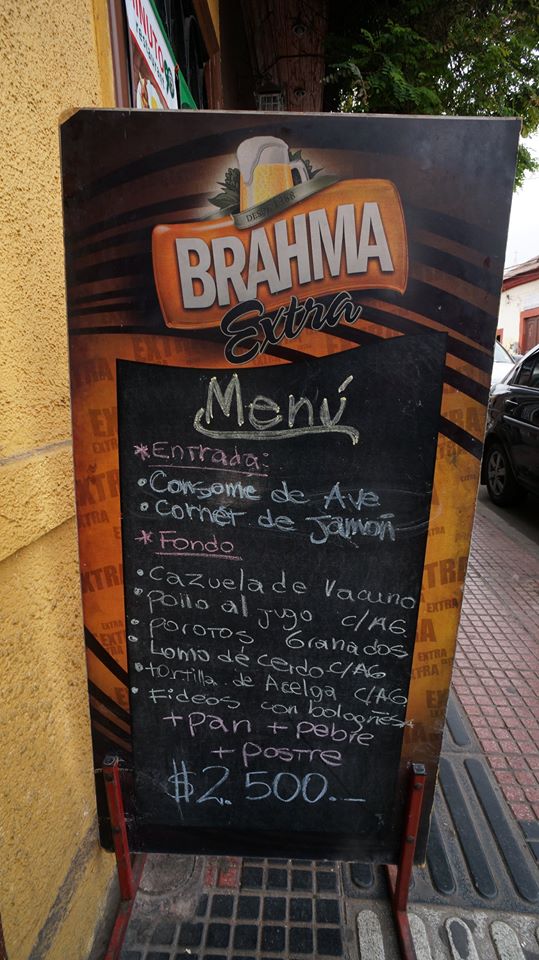 DESDE 1888
BRAHMA
Extra
Menú
*Entrada:
•Consome de Ave
•Cornét de Jamon
*Fondo
•Cazuela de Vacuno
•pollo al jugo c/AG
•porotos Granados
•Lomo de cerdo c/AG
•tortilla de Acelga c/AG
•Fideos con bolognesa
+pan + pebre
+ postre
$2.500.-